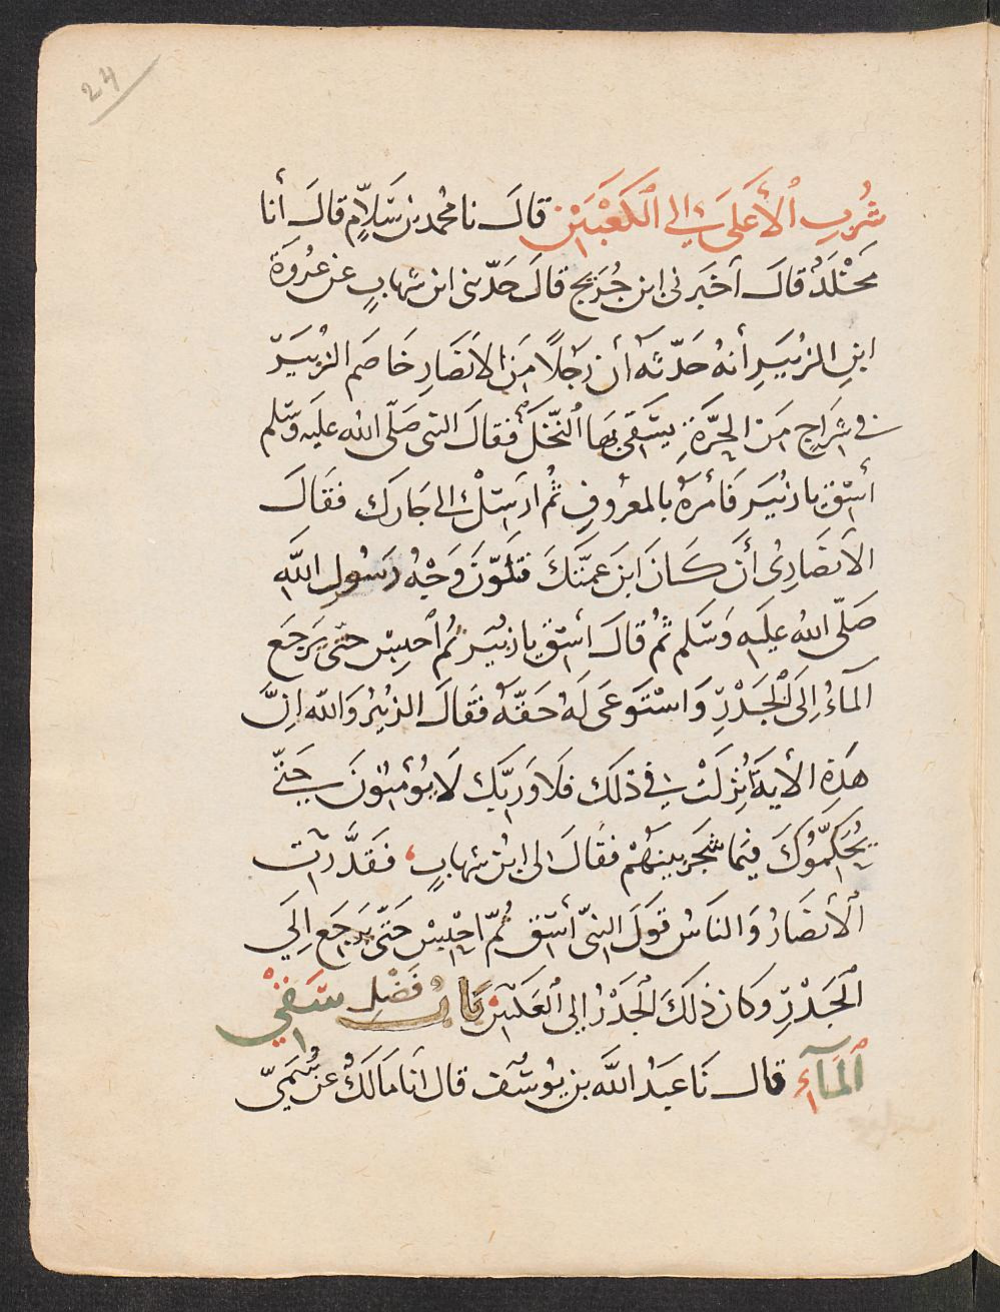 24
شُرْبِ ٱلْأَعلَى إلى ٱلكَعْبَيْنِ قالَ نا محُمد بن سَلاٍّم قالَ أنا
مَخْلَدٌ قالَ أخبَرنى ابن جُرَيج قالَ حَدّثنى ابن شهابٍ عن عُروَة
ابنِ الزُبَيرِ أنهُ حَدّثهُ أن رَجُلًا مِنَ الانَصَارِ خَاصَم الزُبيَرّ
فى شراجٍ مِنَ الحَرَّةِ يسَقى بهَا ٱلنّخلَ فقالَ النبى صَلّى الله عليَه وسَّلم
أسْقِ يا زُبيَر فَأمرَهُ بالمعْرُوفِ ثُم ارسِلْ إلى جَارك فقَالَ
الانَصَارِىُ أنَ كَانَ ابنَ عمَّتكَ فتَلَوّنَ وَجْهُ رَسُولِ اللَّه
صَلّى الله عليَه وَسَّلم ثُم قالَ اسْقِ يا زبيَر ثُم اْحبِسْ حتى يَرجَع
المآءُ إِلَى الْجَدْرِ وَاسْتَوعَى لهُ حَقّهُ فقَالَ الزبُيرُ وَاللّه اِنَّ
هذهِ الأيةَ أُنزِلَتْ فى ذلكَ فلَا وَرَبّك لَا يُؤمنُونَ حتّى
يُحَكِّموُكَ فيَما شجَر بينهُمْ فقَالَ لى ابنُ شهابٍ فَقدَّرَت
ٱلأنصَارُ وَالناسُ قولَ النبّى أسْق ثُمّ احْبِسْ حَتّى يَرجَع اِلَى
ٱلجَدْرِ وكان ذلكَ ٱلجَدْرُ إلى ٱلْعَكبَين بَابُ فَضْلِ سَقْىِ
ٱلمَآءِ قال نَا عبَدُ اللَّه بن يوُسُف قال انَا مَالكٌ عن سُمَىّ